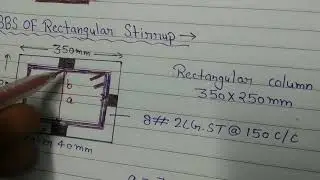 BBS OF Rectangular Stirrup →
350mm
Rectangular column
350X250mm
b
a
8# 2Lg.ST @ 150 C/C
40mm